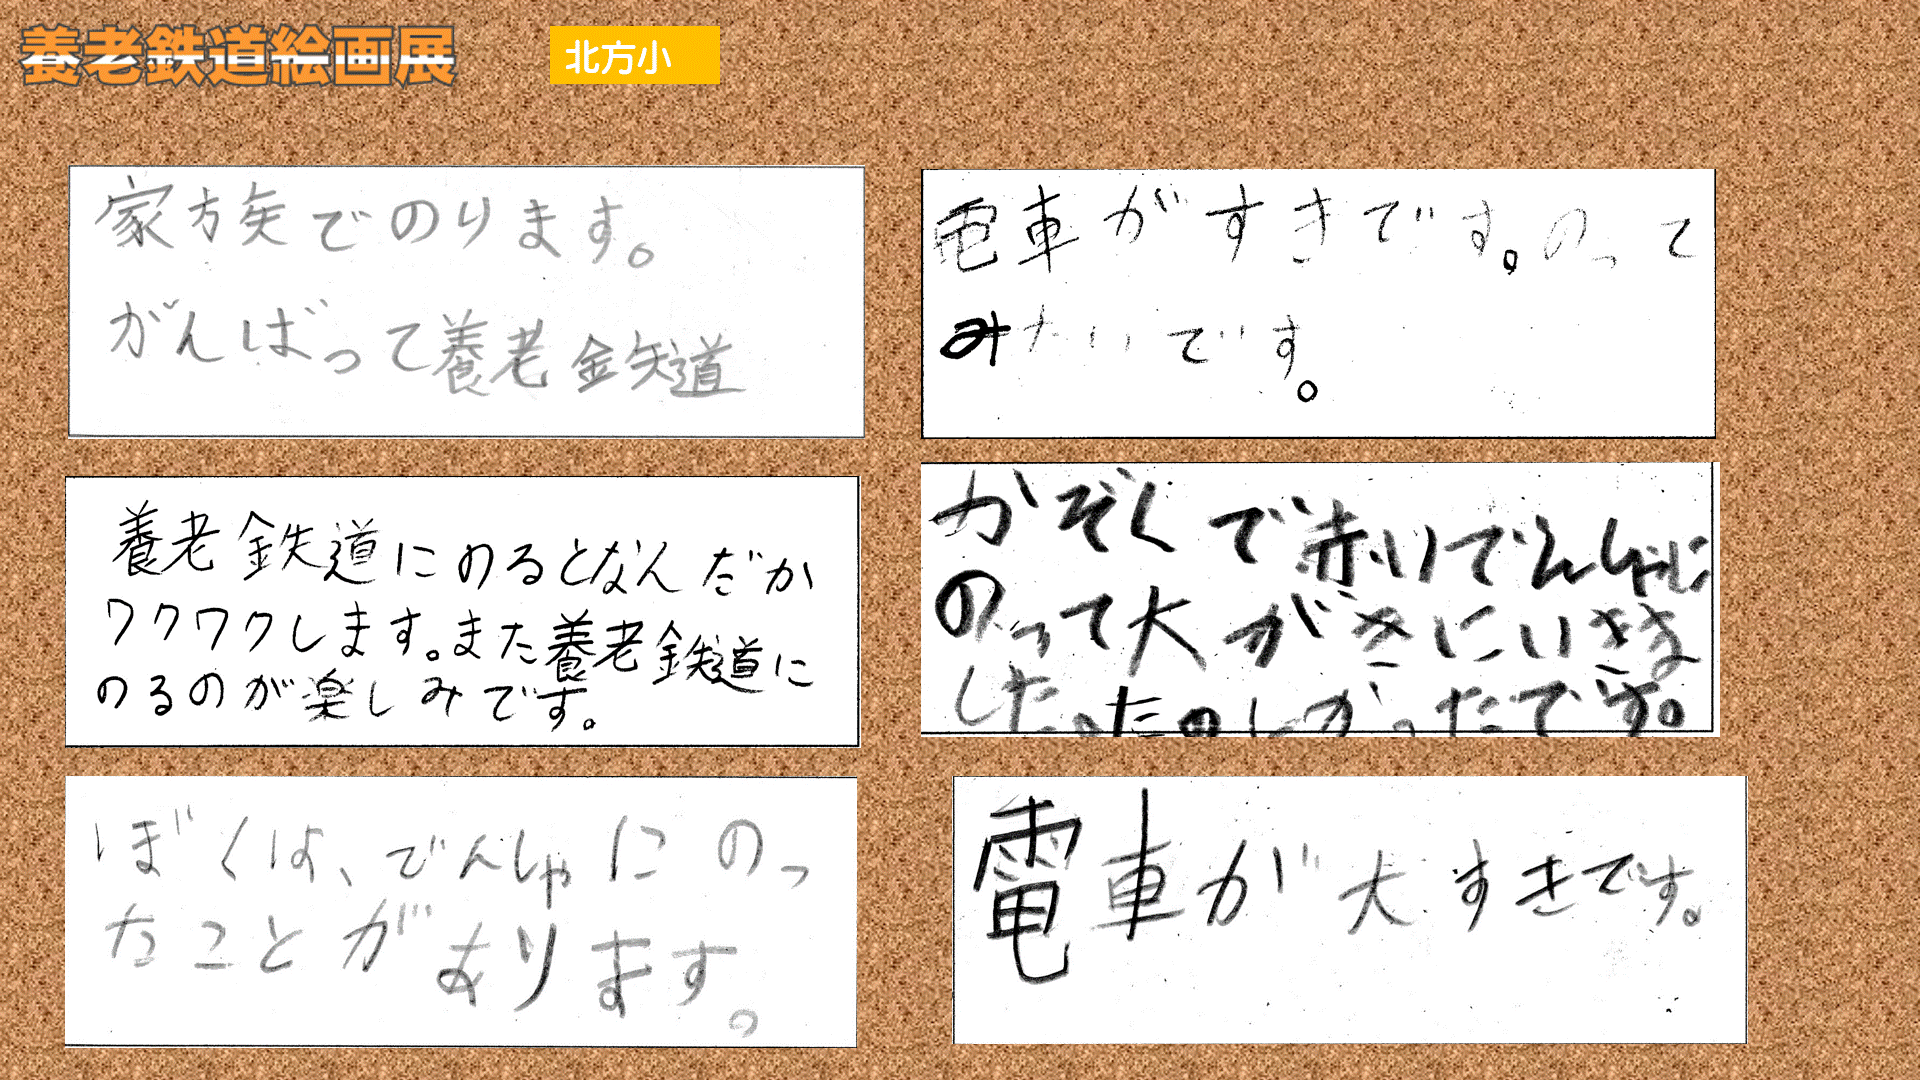 養老鉄道絵画展
北方小
家族でのります。
がんばって養老鉄道
電車がすきです。のって
みたいです。
養老鉄道にのるとなんだか
ワクワクします。また養老鉄道に
のるのが楽しみです。
かぞくで赤いでんしゃに
のって大がきにいきま
した。たのしかったです。
ぼくは、でんしゃにのっ
たことがあります。
電車が大すきです。